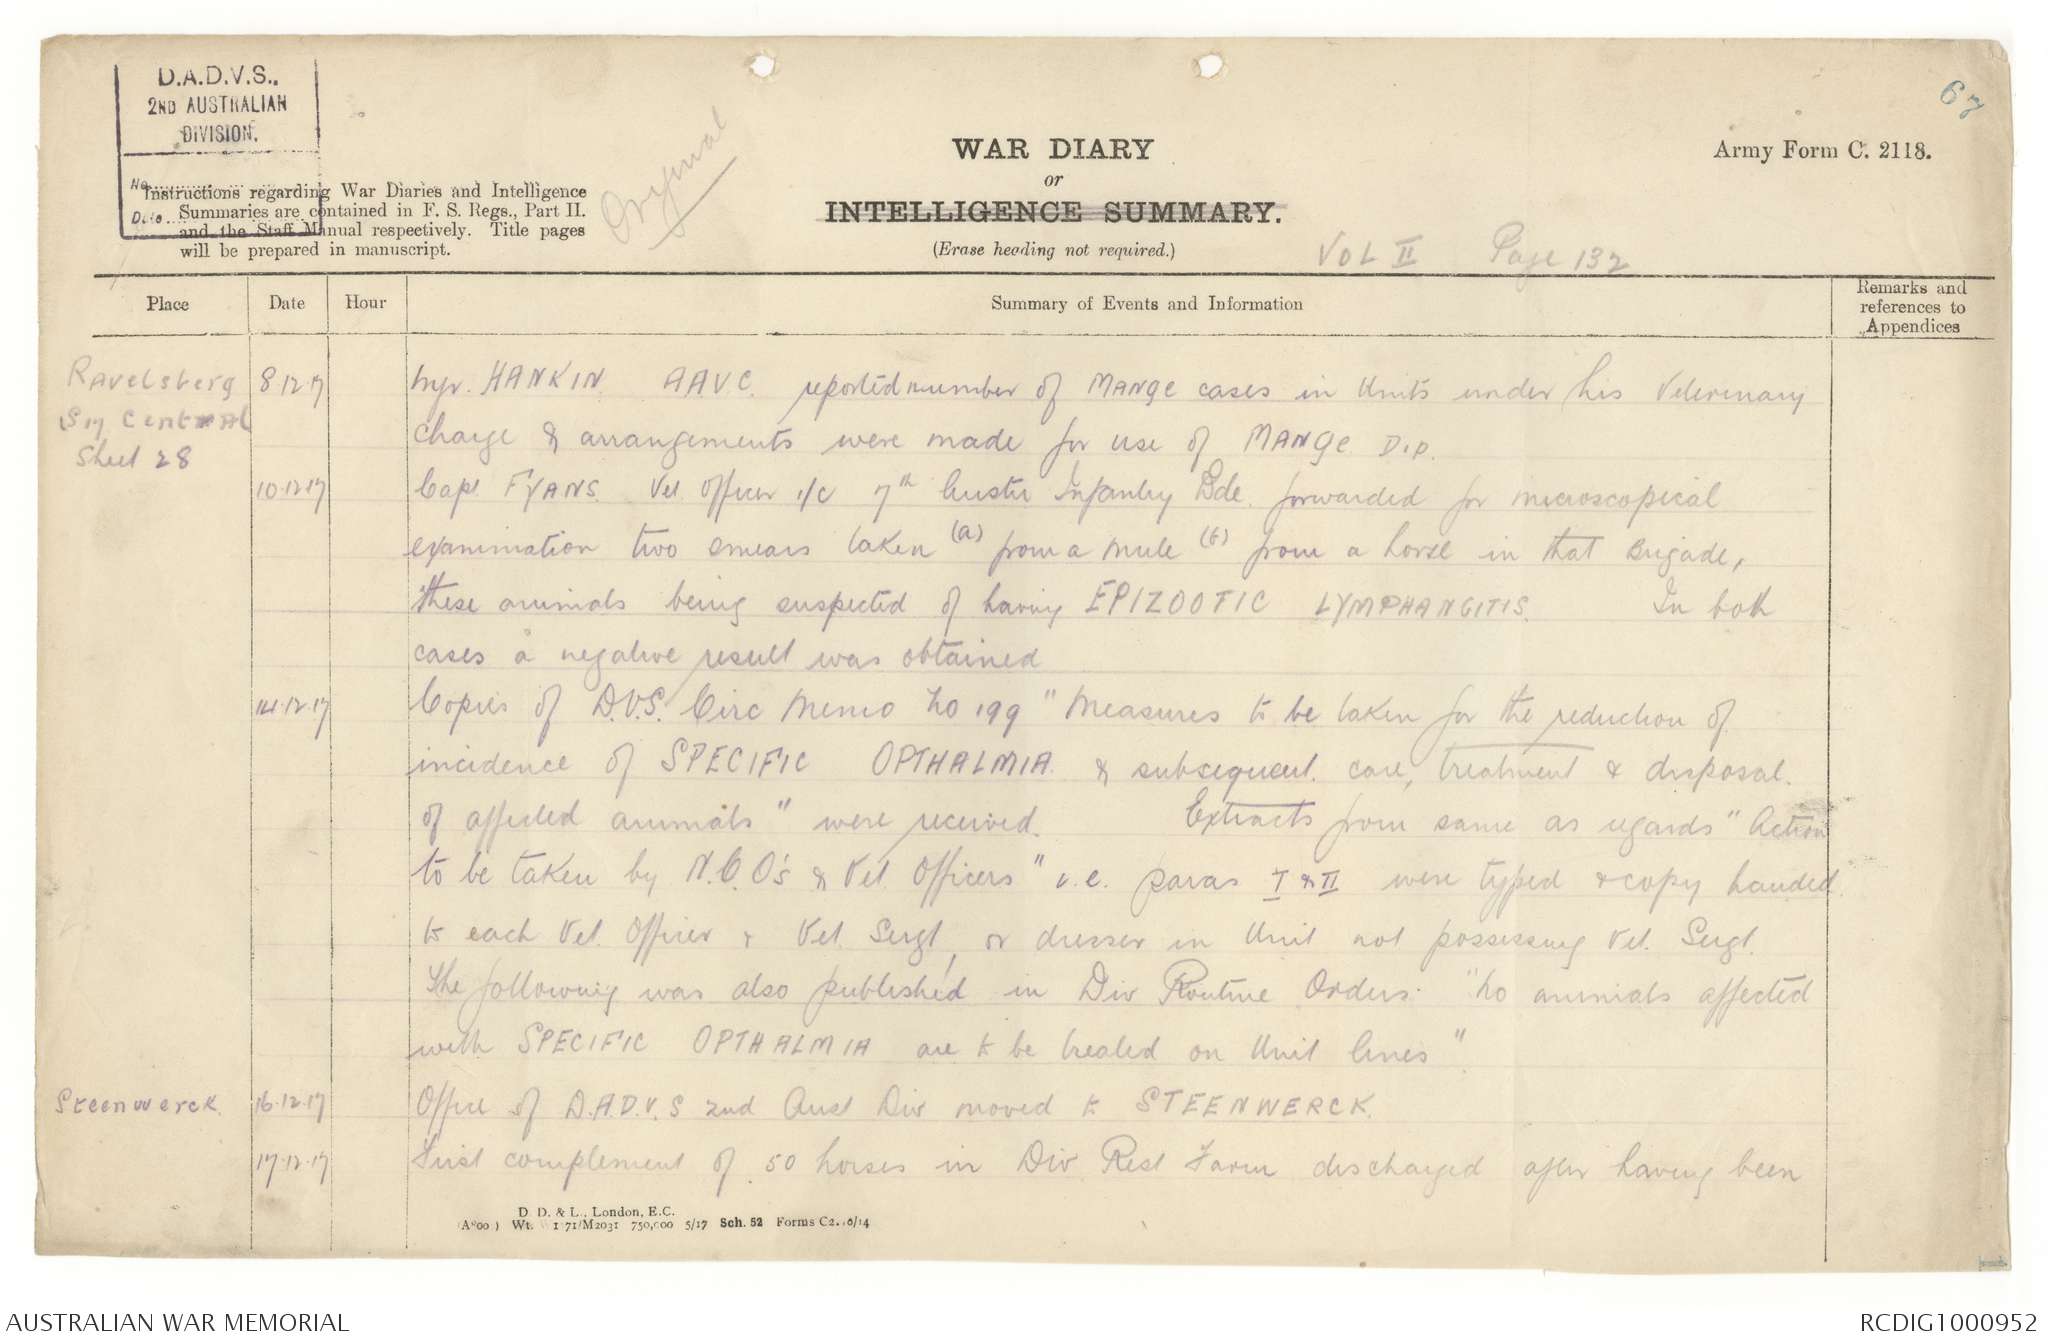 D.A.D.V.S.,
2ND AUSTRALIAN
DIVISION.
No.
Date
Original
67
WAR DIARY
or
INTELLIGENCE SUMMARY.
(Erase heading not required.)
Army Form C. 2118.
Instructions regarding War Diaries and Intelligence
Summaries are contained in F. S. Regs., Part II.
and the Staff Manual respectively. Title pages
will be prepared in manuscript.
VOL II Page 132
Place
Date
Hour
Summary of Events and Information
Remarks and
references to
Appendices
Ravelsberg 8.12.17 HANKIN AAVC. reported number of MANGE cases in Units under his Veterinary
Central charge & arrangements were made for use of MANGE Dip.
Sheet 28
10.12.17 Capt FYANS. Vet. Officer i/c 7th Austn Infantry Bde. forwarded for microscopical
examination two smears taken (a) from a mule (b) from a horse in that Brigade,
these animals being suspected of having EPIZOOTIC LYMPHANGITIS. In both
cases a negative result was obtained
14.12.17 Copies of D.V.S. Circ Memo No 199 "Measures to be taken for the reduction of
incidence of SPECIFIC OPTHALMIA & subsequent. care, treatment & disposal.
of affected animals" were received. Extracts from same as regards "Action
to be taken by N.C.O's & Vet. Officers" i.e. paras I & II were typed & copy handed
to each Vet. Officer & Vet. Sergt, or dresser in Unit not possessing Vet. Sergt.
The following was also published in Div Routine Orders. "No animals affected
with SPECIFIC OPTHALMIA are to be treated on Unit lines"
Steenwerck. 16.12.17 Office of D.A.D.V.S 2nd Aust Div moved to STEENWERCK.
17.12.17 First complement of 50 horses in Div Rest Farm discharged after having been
D. D. & L., London, E.C.
Wt. 750,000 5/17 Sch. 52 Forms
AUSTRALIAN WAR MEMORIAL
RCDIG1000952